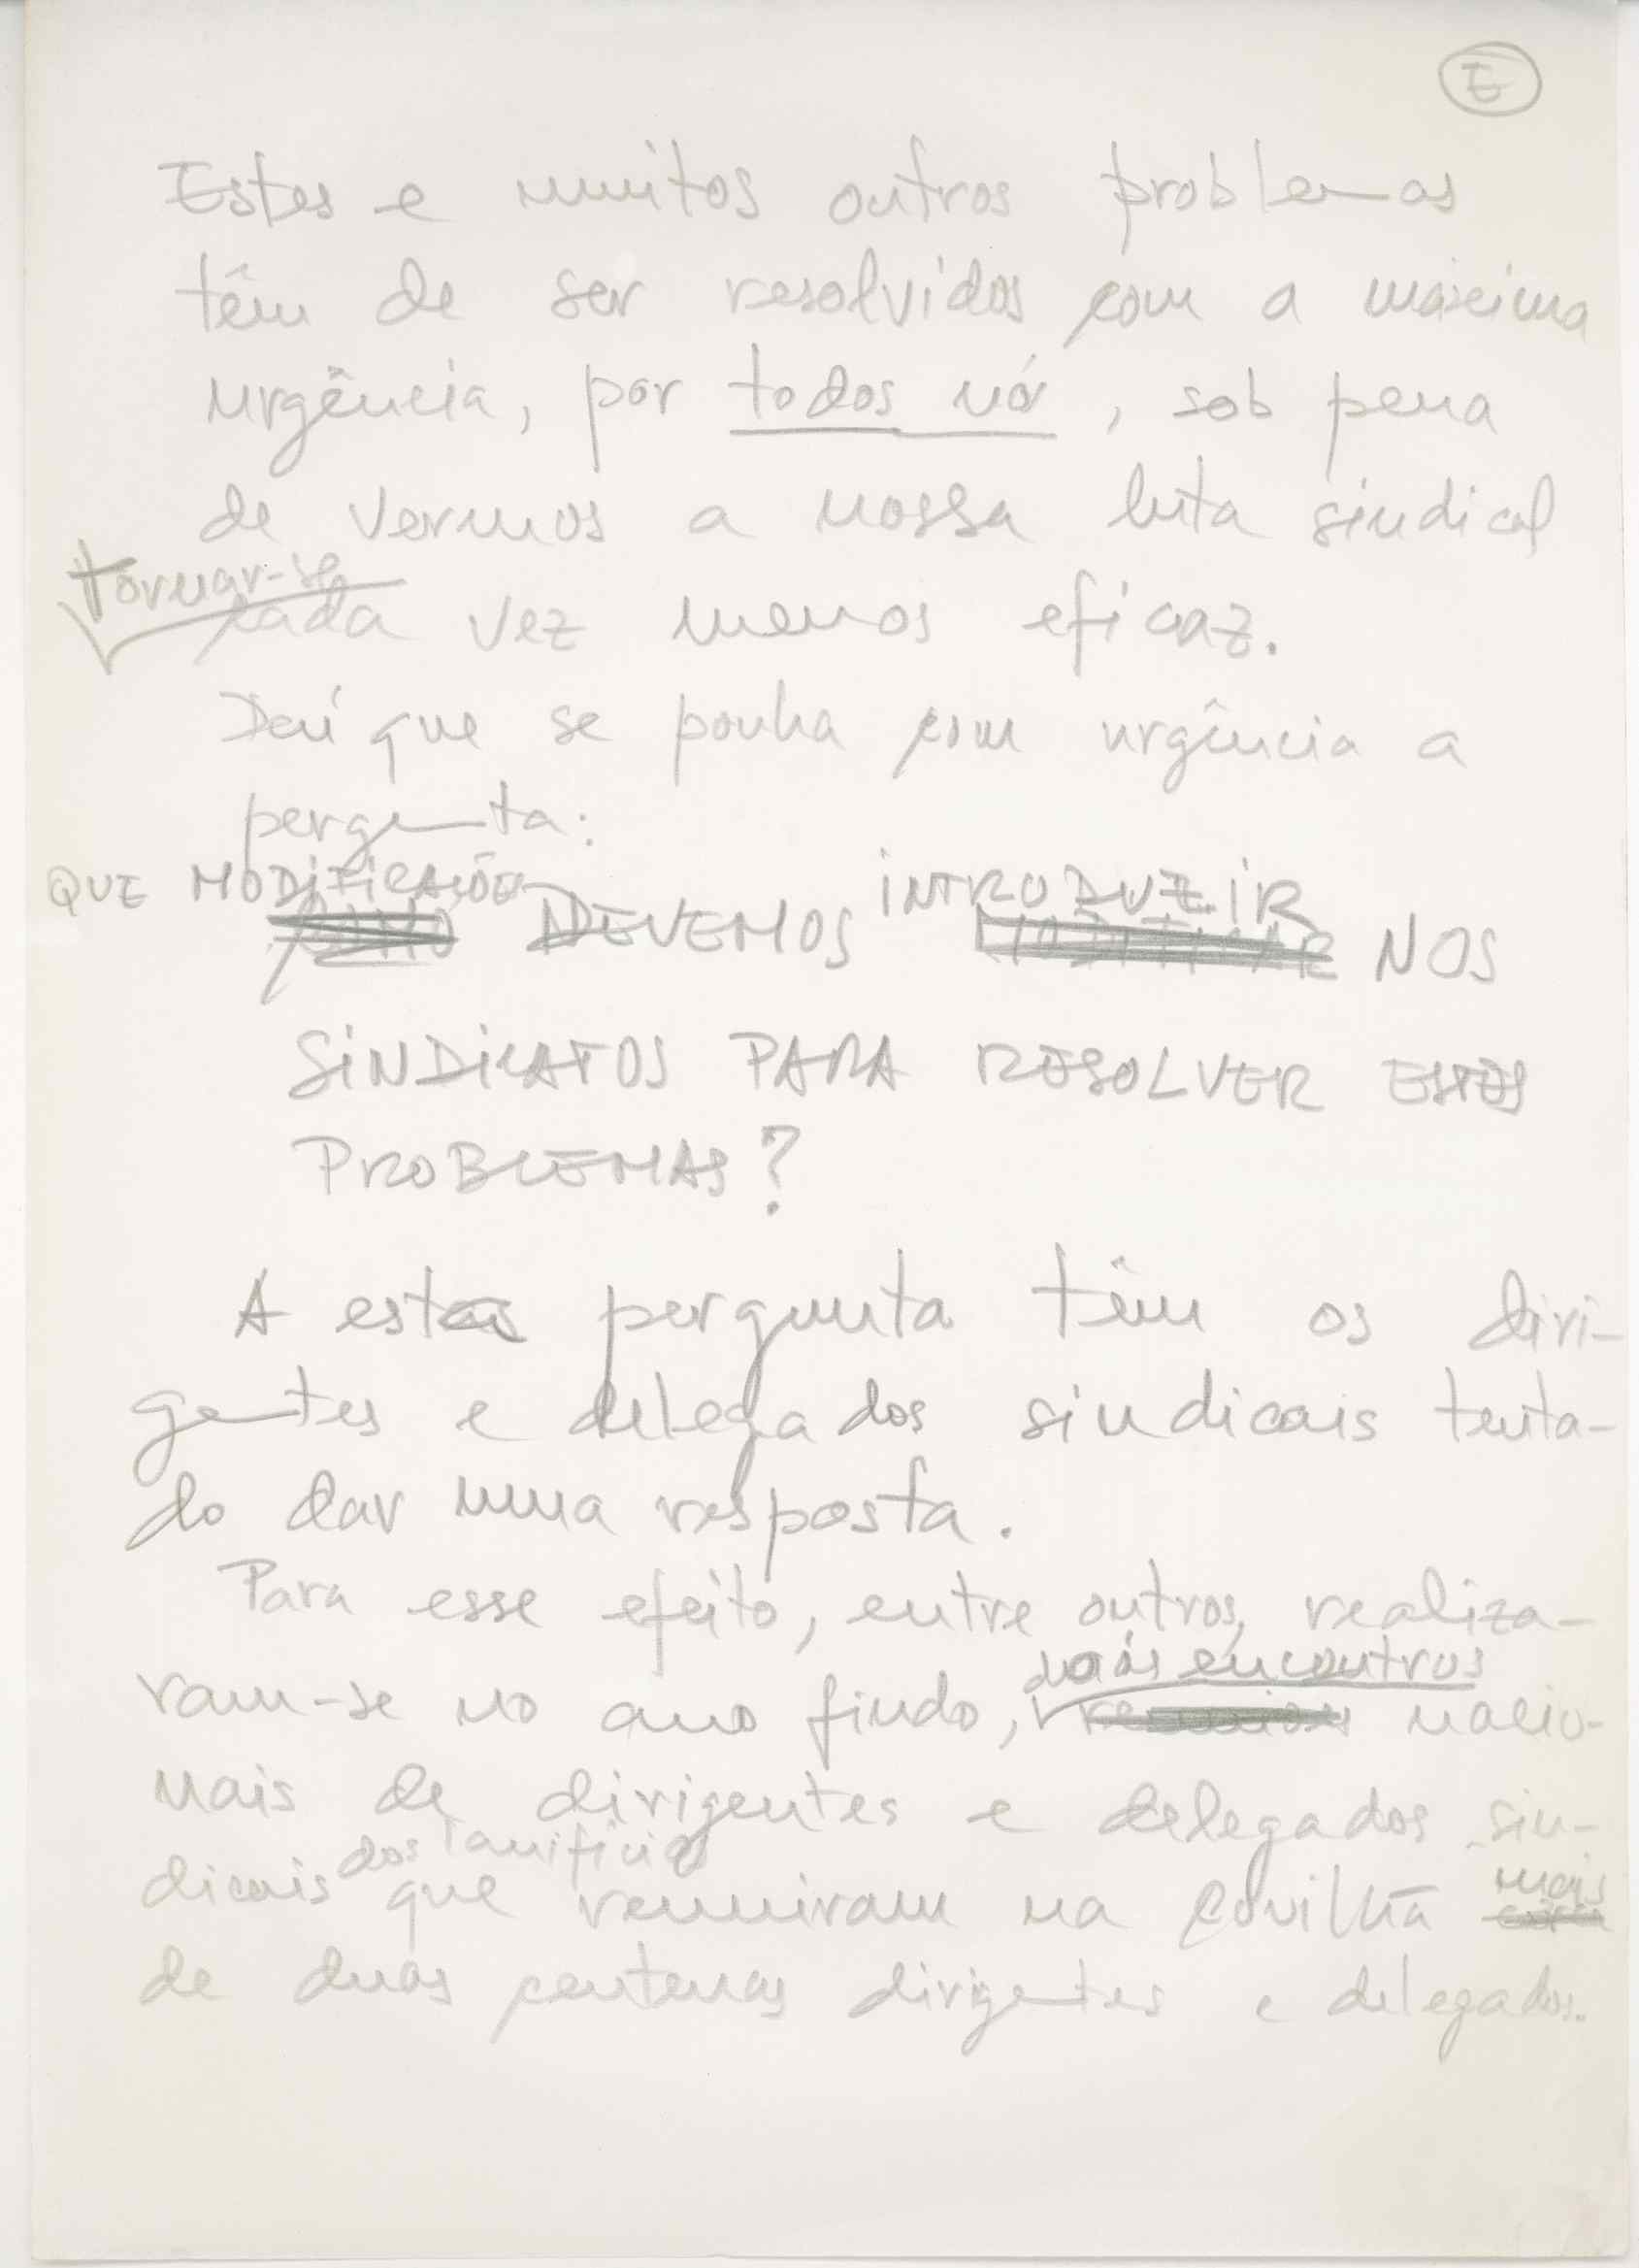 E
Estes e muitos outros problemas
têm de ser resolvidos com a máxima
urgência, por todos nós, sob pena
de vermos a nossa luta sindical
tornar-se
cada vez menos eficaz.
Daí que se ponha com urgência a
pergunta:
QUE MODIFICAÇÕES INTRODUZIR
COMO DEVEMOS MODIFICAR NOS
SINDICATOS PARA RESOLVER ESTES
PROBLEMAS?
A esta pergunta têm os diri-
gentes e delegados sindicais tenta-
do dar uma resposta.
Para esse efeito, entre outros, realiza-
encontros
ram-se no ano findo, reuniões nacio-
nais de dirigentes e delegados sin-
dos lanifícios
dicais que reuniram na Covilhã mais
de duas centenas dirigentes e delegados.